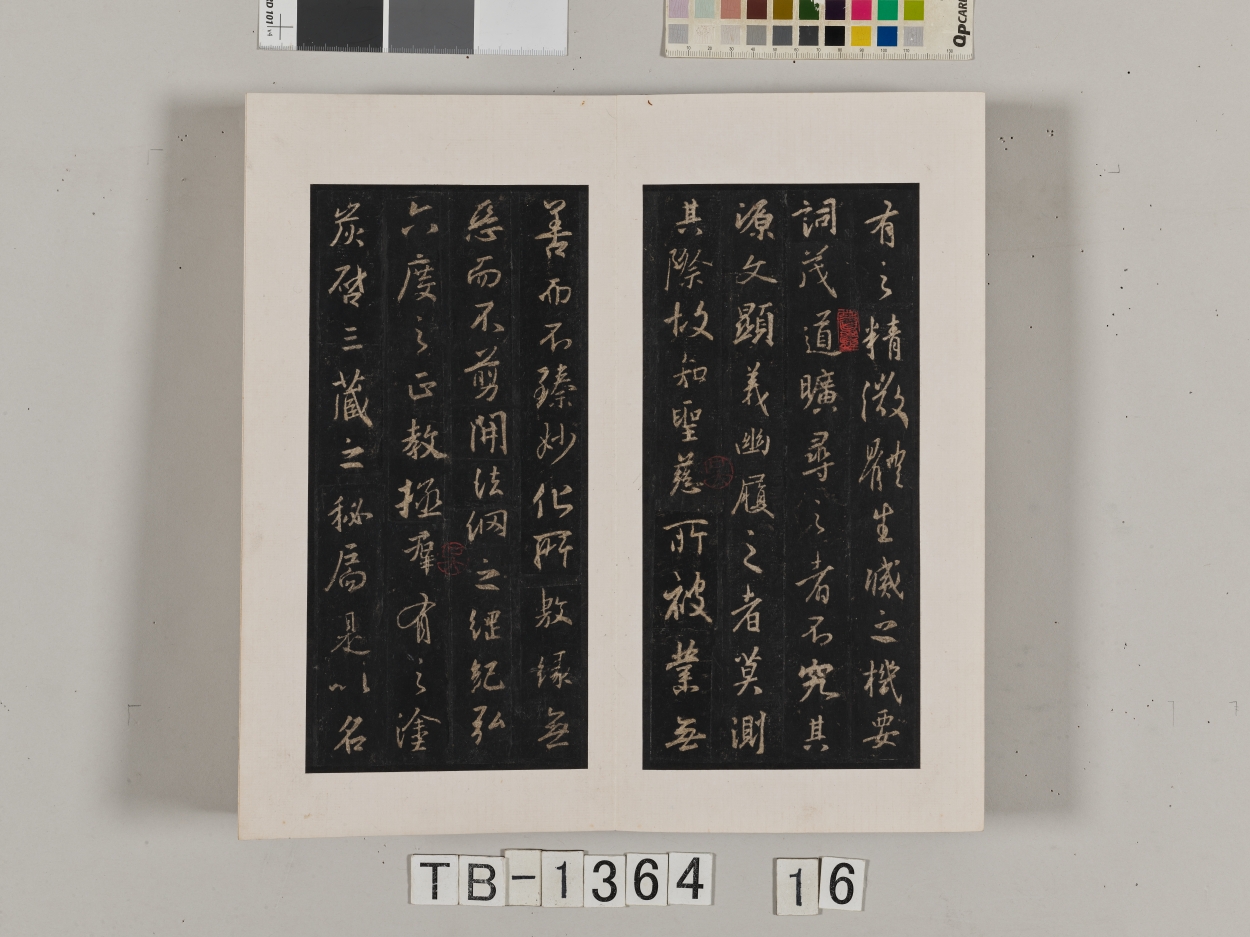 有之精微體生滅之機要
詞茂道曠尋之者不究其
源文顯義幽履之者莫測
其際故知聖慈所被業無
善而不臻妙化所敷緣無
惡而不剪開法網之綱紀弘
六度之正教拯羣有之塗
炭啓三藏之秘扃是以名
TB-1364 16